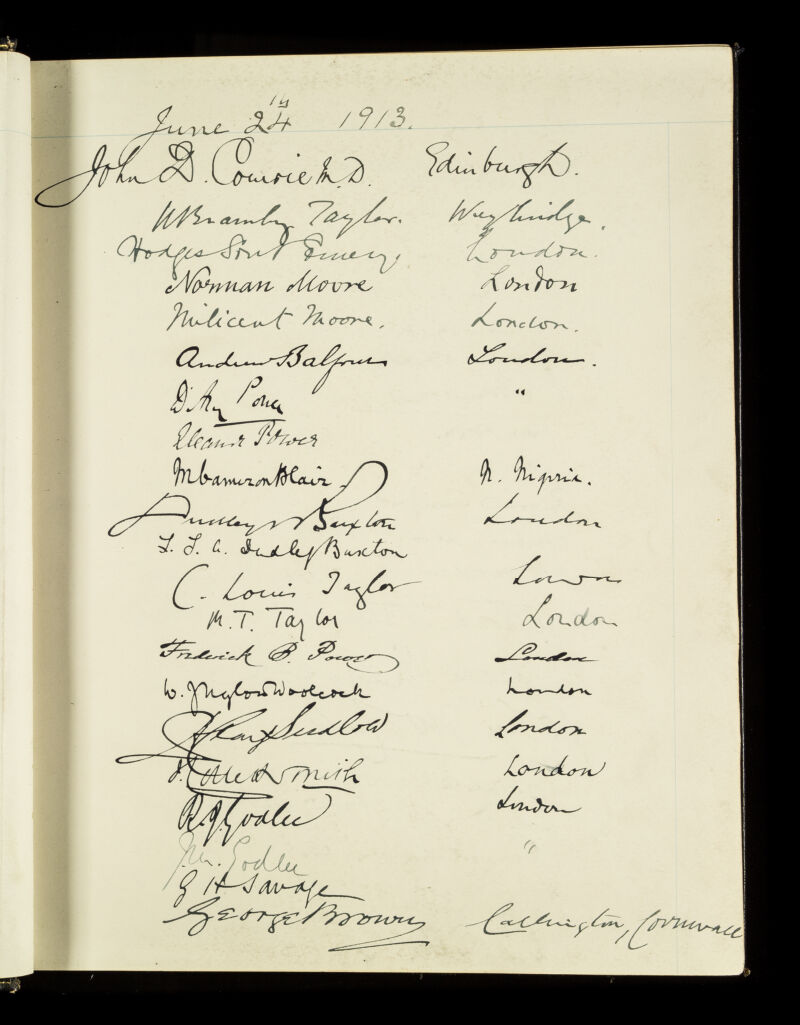 June 24th 1913.
John D. Comrie M.D. Edinburgh.
Taylor. Weybridge.
London.
Norman Moore London
Milicent Moore. London.
Andrew Balfour London.
D'Arcy Power "
Eleanor Power
M Cameron Blair. N. Nigeria.
Dudley W Buxton London
Dudley Buxton
C. Louis Taylor London
M. T. Taylor London
Frederick B. Power London
W. J Uglow Woolcock London
London
London
R. J. Godlee London
J. M. Godlee "
G H Savage
George Brown Callington, Cornwall